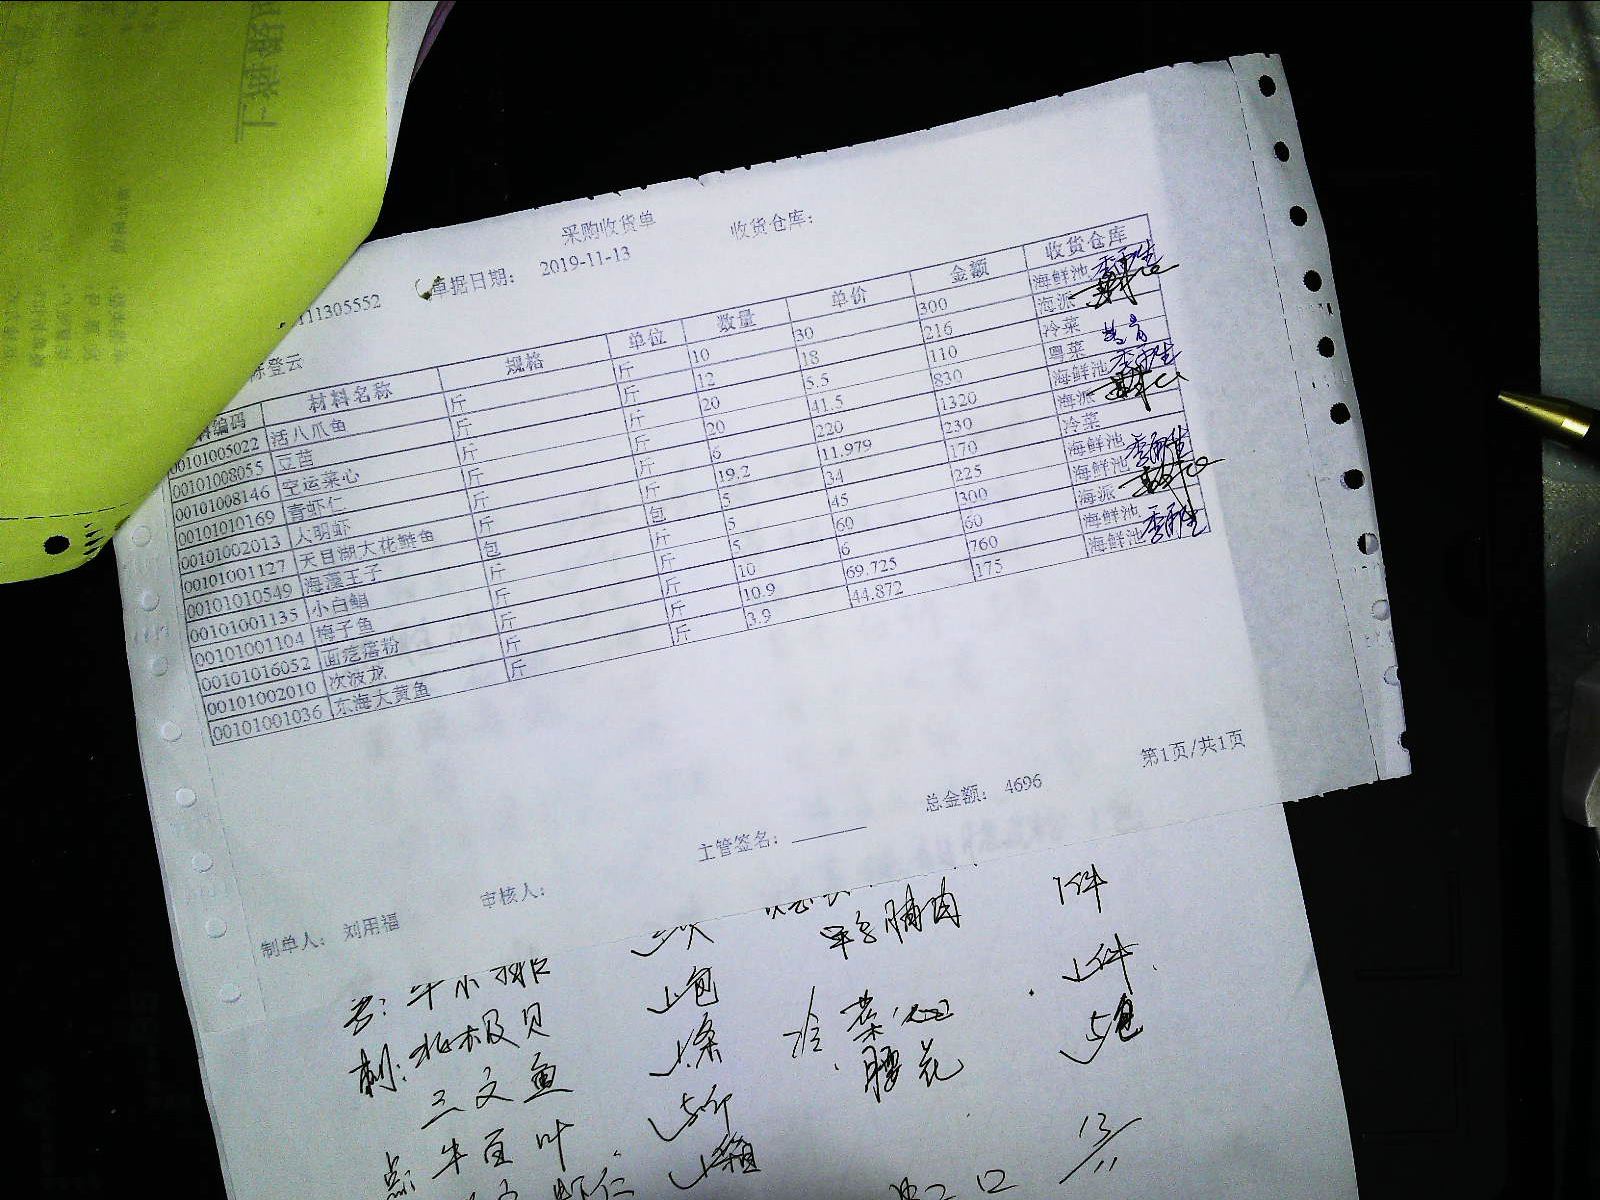 采购收货单 收货仓库:
11305552 单据日期: 2019-11-13
陈登云
编码 材料名称 规格 单位 数量 单价 金额 收货仓库
00101005022 活八爪鱼 斤 斤 10 30 300 海鲜池
00101008055 豆苗 斤 斤 12 18 216 海派
00101008146 空运菜心 斤 斤 20 5.5 110 冷菜
00101010169 青虾仁 斤 斤 20 41.5 830 粤菜
00101002013 大明虾 斤 斤 6 220 1320 海鲜池
00101001127 天目湖大花鲢鱼 斤 斤 19.2 11.979 230 海派
00101010549 海藻王子 包 包 5 34 170 冷菜
00101001135 小白鲳 斤 斤 5 45 225 海鲜池
00101001104 梅子鱼 斤 斤 5 60 300 海鲜池
00101016052 面疙瘩粉 斤 斤 10 6 60 海派
00101002010 次波龙 斤 斤 10.9 69.725 760 海鲜池
00101001036 东海大黄鱼 斤 斤 3.9 44.872 175 海鲜池
第1页/共1页
总金额: 4696
主管签名:
审核人:
制单人: 刘用福
牛小排
脯肉 1件
刺: 北极贝 1包
冷菜: 1件
三文鱼 1条
腰花 5包
点: 牛百叶 5斤
虾仁 1箱
13/11